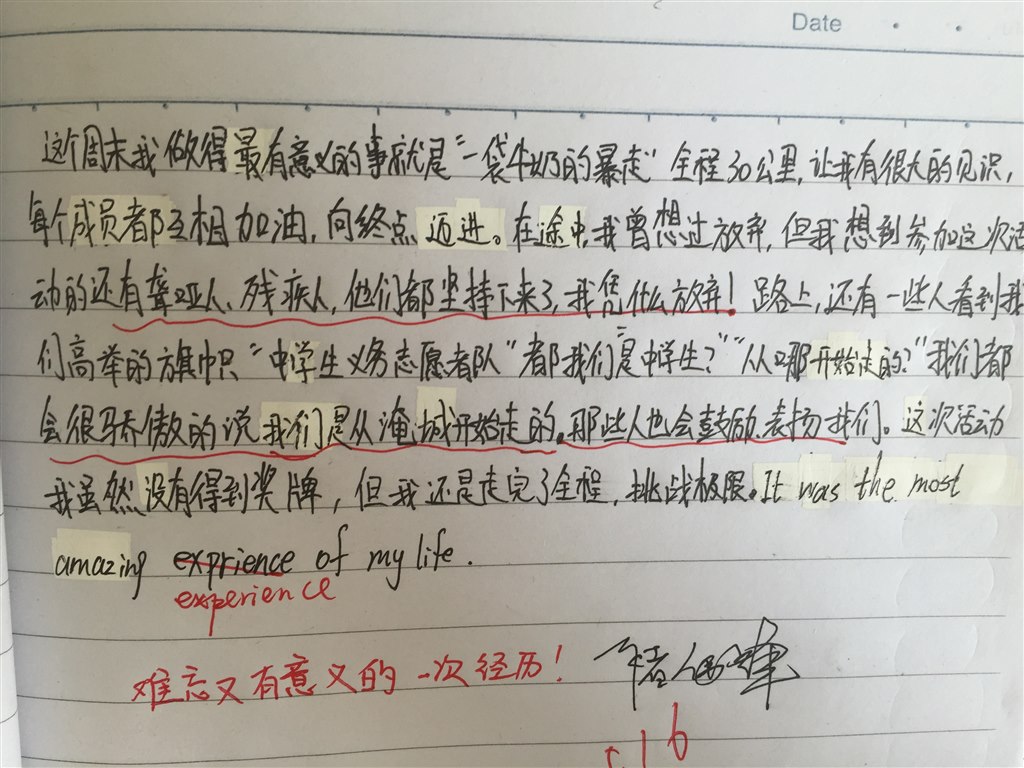 Date
这个周末我做得最有意义的事就是“一袋牛奶的暴走”全程30公里,让我有很大的见识,
每个成员都互相加油,向终点迈进。在途中,我曾想过放弃,但我想到参加这次活
动的还有聋哑人、残疾人,他们都坚持下来了,我凭什么放弃!路上,还有一些人看到我
们高举的旗帜“中学生义务志愿者队”都我们“是中学生?”“从哪开始走的?”我们都
会很骄傲的说我们是从淹城开始走的。那些人也会鼓励、表扬我们。这次活动
我虽然没有得到奖牌,但我还是走完了全程,挑战极限。It was the most
amazing exprience of my life.
experience
难忘又有意义的一次经历!